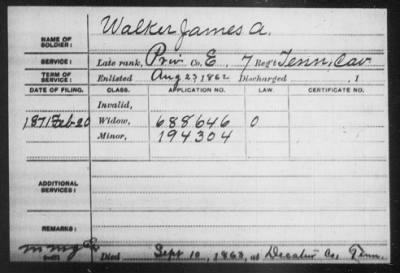 NAME OF SOLDIER: Walker James A.
SERVICE: Late rank, Priv Co. E, 7 Reg't Tenn, Cav
TERM OF SERVICE: Enlisted Aug 23 1862 Discharged , 1
DATE OF FILING. CLASS. APPLICATION NO. LAW. CERTIFICATE NO.
Invalid,
1871 Feb 20 Widow, 688646 0
Minor, 194304
ADDITIONAL SERVICES:
REMARKS:
Died Sept 10, 1863, at Decatur Co, Tenn.